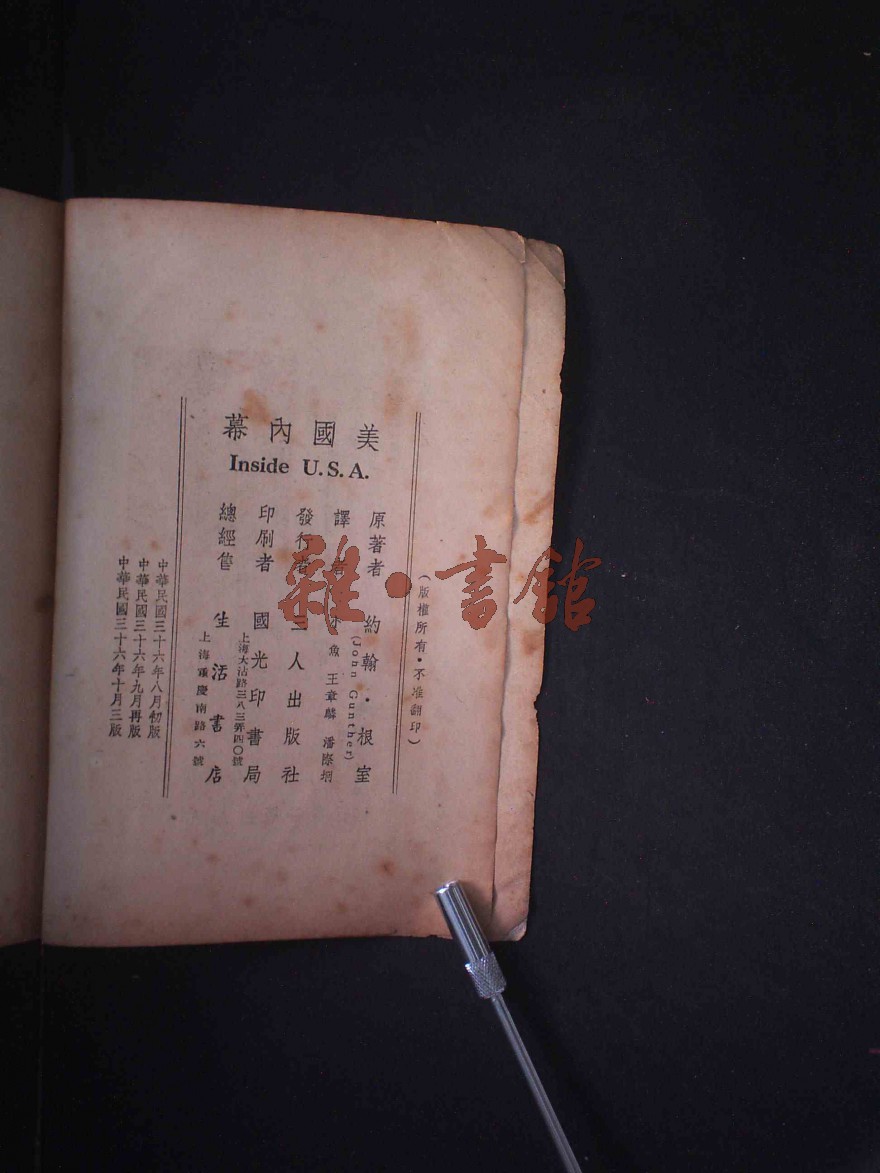 美國內幕
Inside U.S.A.
(版權所有·不准翻印)
原著者 約翰·根室
(John Gunther)
譯 魚 王章麟 潘際坰
發行者 三人出版社
印刷者 國光印書局
上海大沽路三八三弄四〇號
總經售 生活書店
上海重慶南路六號
中華民國三十六年八月初版
中華民國三十六年九月再版
中華民國三十六年十月三版
雜·書館